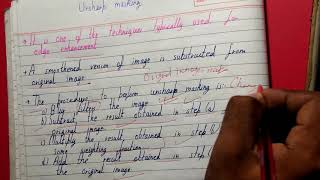 Unsharp masking
• It is one of the techniques typically used for
edge enhancement
• A smoothened version of image is substracted from
original image.
Original image - mask
• The procedure to perform unsharp masking is:
a) Blur filter the image
b) Subtract the result obtained in step (a)
original image
c) Multiply the result obtained in step (b)
some weighting fraction
d) Add the result obtained in step (
the original image